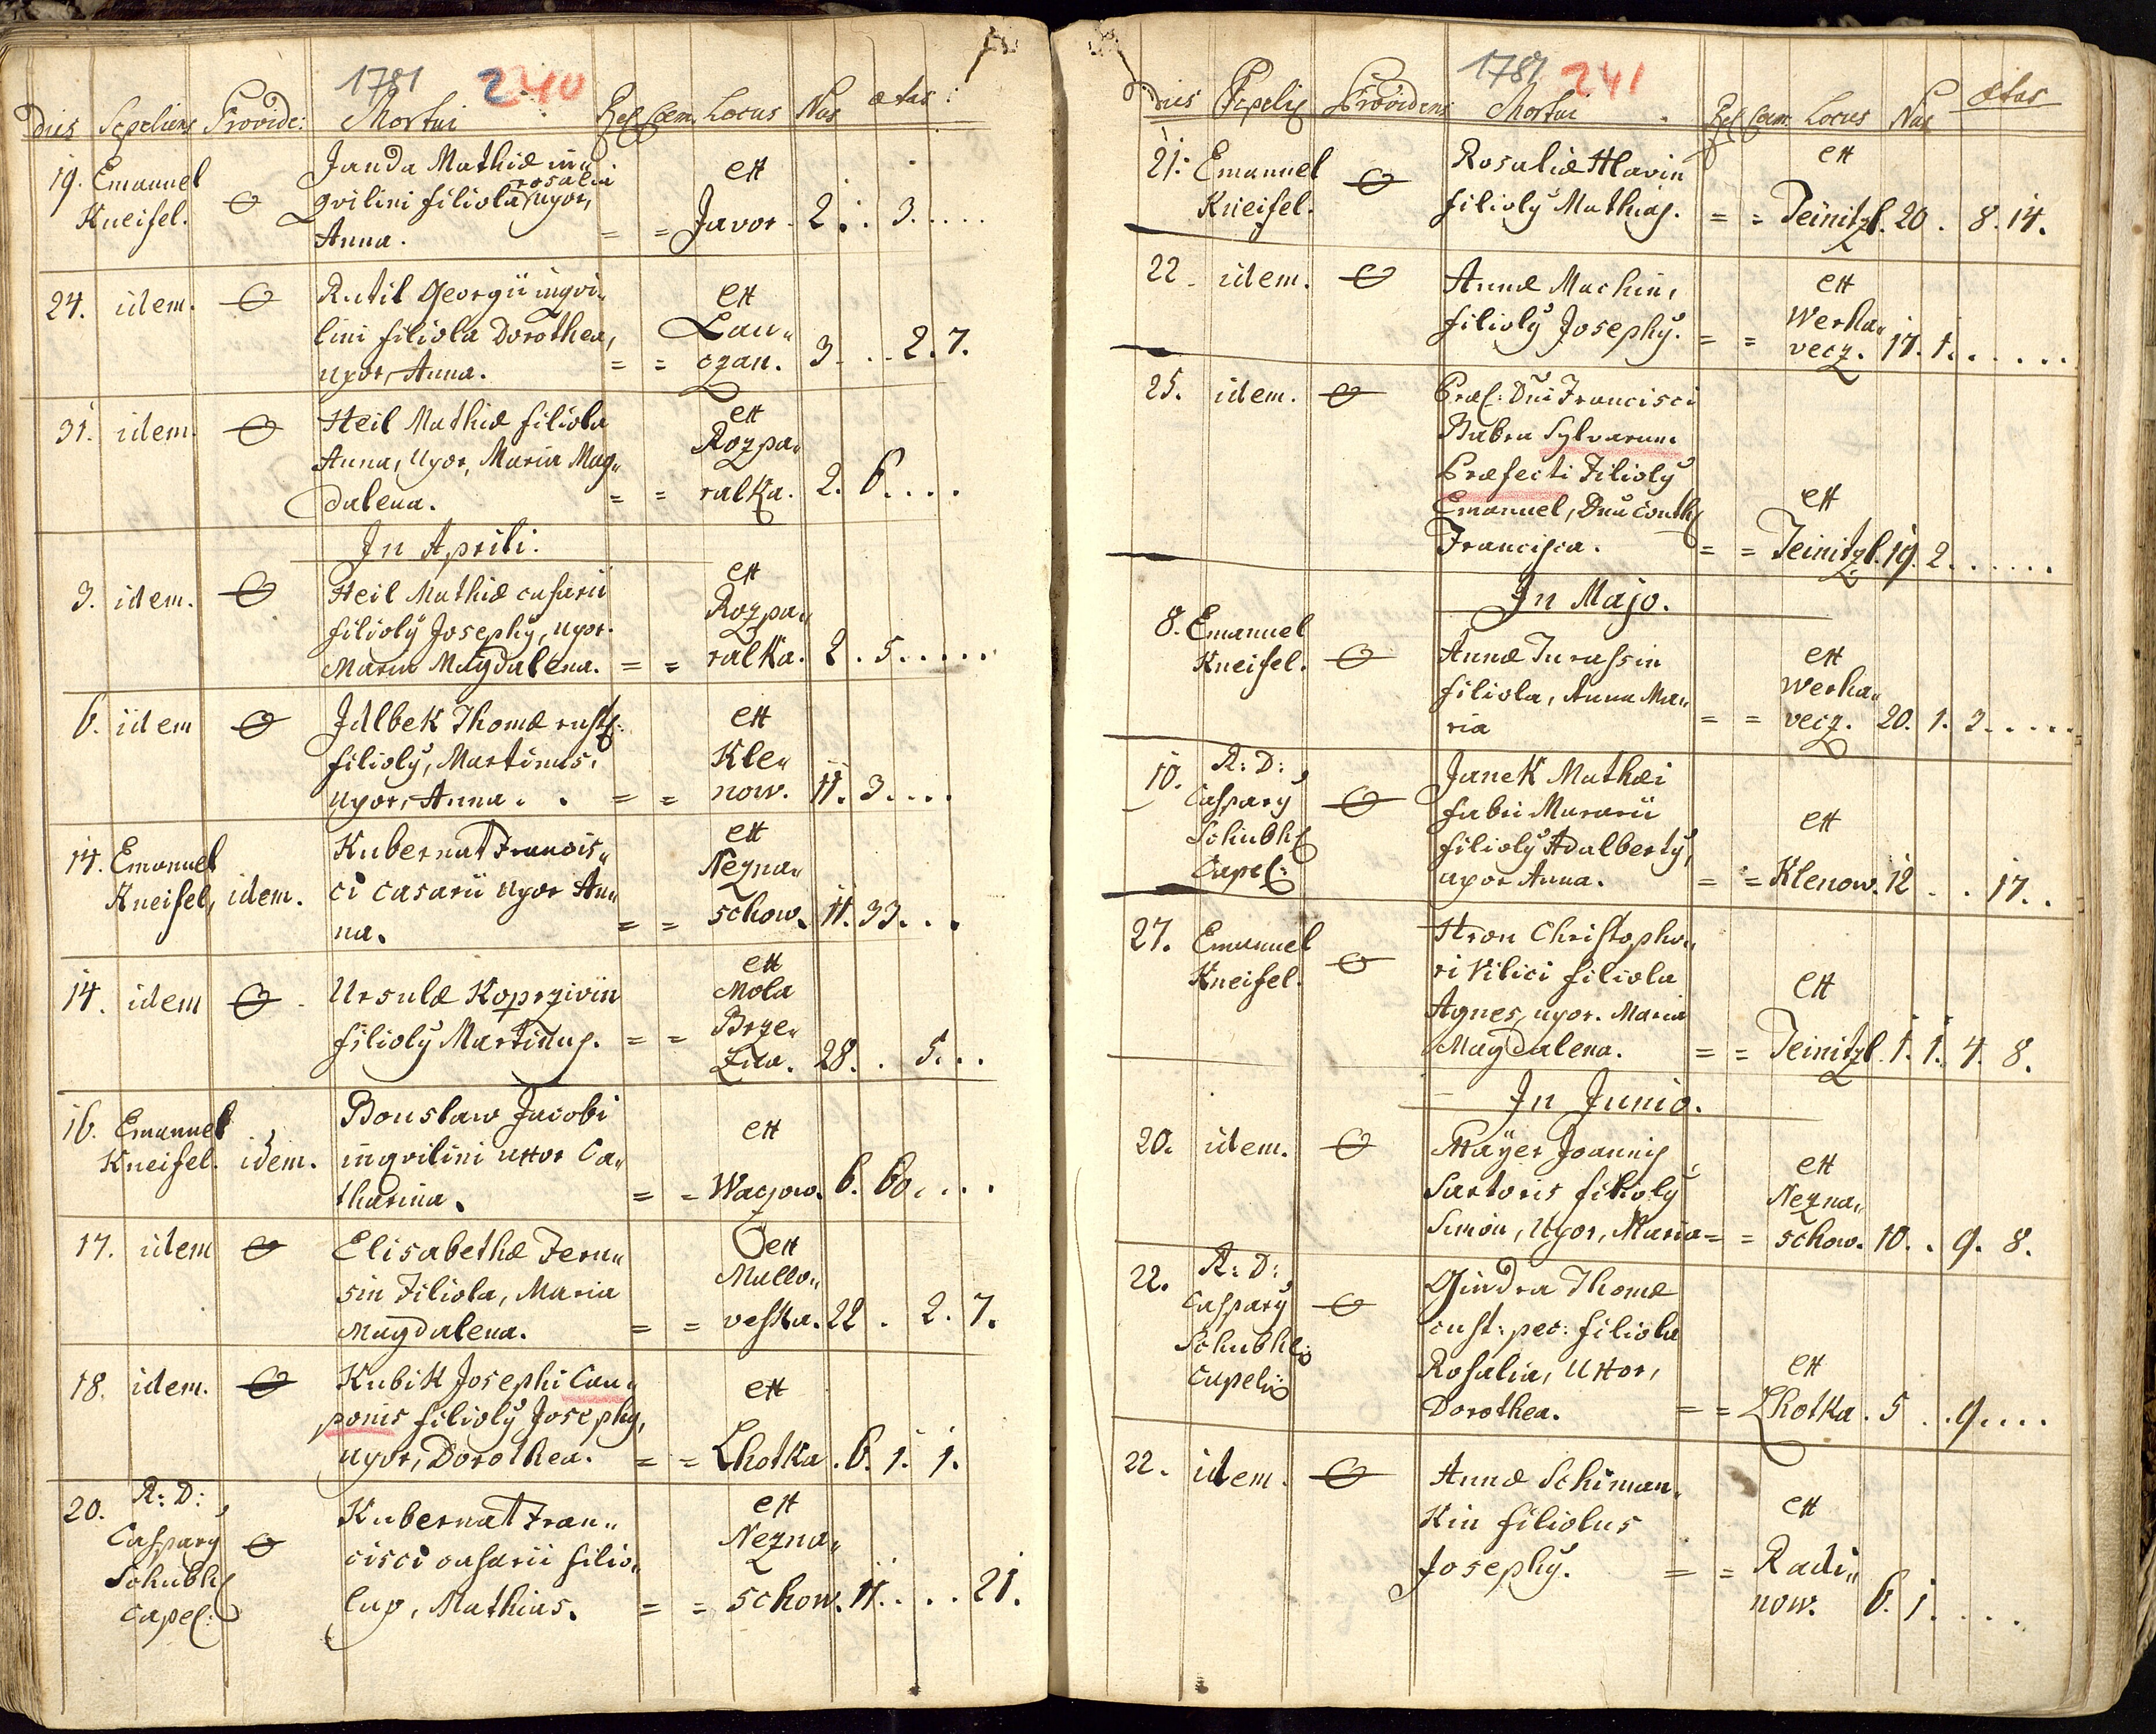 1781 240
Dies Sepeliens Provide: Mortui Rel Coem. Locus Nus ætas:
19. Emanuel Kneisel.
Janda Mathiæ in„
qvilini filiola rosalia uxor,
Anna. = = ex Javor 2 . . 3 . . . . .
24. idem.
Rutil Georgii inqvi„
lini filiola Dorothea,
uxor, Anna. = = ex Lau„
czan. 3 . . . 2. 7.
31. idem.
Heil Mathiæ filiola
Anna, Uxor, Maria Mag„
dalena. = = ex Rozpa„
ralka. 2. 6. . . .
In Aprili.
3. idem.
Heil Mathiæ casarii
filioly Josephy, uxor.
Maria Magdalena. = = ex Rozpa„
ralka. 2 . 5. . . . .
6. idem
Jilbek Thomæ rust:
filioly, Martinus,
uxor, Anna. . = = ex Kle„
now. 11. 3. . . .
14. Emanuel
Kneisel, idem.
Kubernat Francis„
ci casarii uxor An„
na. = = ex Nezna„
schow. 11. 33. . .
14. idem
Ursulæ Koprziwin
filioly Martinus. = = ex Mola
Brze„
zina. 28. . 5. . .
16. Emanuel
Kneisel. idem.
Bouslaw Jacobi
inqvilini uxor Ca„
tharina. = = ex Waczow. 6. 60. . . .
17. idem
Elisabethæ Feru„
sin Filiola, Maria
Magdalena. = = ex Mallo„
veska. 22 . 2. 7.
18. idem.
Kubik Josephi Cau„
ponis filioly Josephy,
uxor, Dorothea. = = ex Lhotka. 6. 1. 1.
20. R: D:
Caspary
Schubh
Capel:
Kubernat Fran„
cisci casarii filio„
lus, Mathias. = = ex Nezna„
schow. 11. . . . 21.
1781 241
Dies Sepelis Providens Mortui Rel Coem Locus Nus Ætas
21. Emanuel
Kneisel.
Rosaliæ Hlavin
filioly Mathias. = = ex Teinitzl. 20. 8. 14.
22. idem.
Annæ Machin,
filioly Josephy. = = ex Werka„
vecz. 17. 1. . . . . .
25. idem.
Præf: Dni Francisci
Babra Sylvarum
Præfecti Filioly
Emanuel, Dna Conth
Francisca. = = ex Teinitzl. 19. 2. . . . . .
In Majo.
8. Emanuel
Kneisel.
Annæ Turassin
filiola, Anna Ma„
ria = = ex Werka„
vecz. 20. 1. 3. . . . .
10. R: D:
Caspary
Schubh
Capel:
Janek Mathæi
fabri Murarii
filioly Adalberty,
uxor Anna. = = ex Klenow. 12 . . 17. .
27. Emanuel
Kneisel.
Hron Christopho„
ri Vilici filiola
Agnes, uxor. Maria
Magdalena. = = ex Teinitzl. 1. 1. 4. 8.
In Junio.
20. idem.
Mayer Joannis
Sartoris filioly
Simon, Uxor, Maria = = ex Nezna„
schow. 10. . 9. 8.
22. R: D:
Caspary
Schubh:
Capel:
Gindra Thomæ
cust: pec: filiola
Rosalia, Uxor,
Dorothea. = = ex Lhotka. 5 . . 9. . . .
22. idem.
Annæ Schiman„
kin filiolus
Josephy. = = ex Radi„
now. 6. 1. . . . .